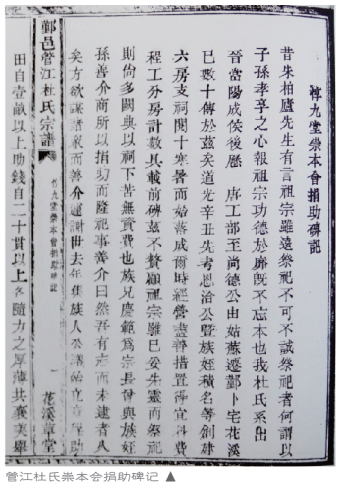 惇九堂崇本會捐助碑記
昔朱柏廬先生有言祖宗雖遠祭祀不可不誠祭祀者何謂以
子孫孝享之心報祖宗功德於靡既不忘本也我杜氏系出
晉當陽成侯後歷 唐工部至尚德公由姑蘇遷鄞卜宅花溪
已數十傳於茲矣道光辛丑先考思洽公暨族姪積名等創建
六房支祠閱十寒暑而始善成爾時經營盡善措置得宜料費
程工分房計數具載前碑茲不贅顧祖宗雖已妥先靈而祭祀
則尚多闕典以祠下苦無貲費也族兄慶範為宗長與族姪
孫善介商所以捐助而隆祀事善介曰然吾有志而未逮者久
矣方欲謀諸衆而善介遽謝世去年集族人公議始立章程助
田自壹畝以上助錢自二十貫以上各隨力之厚薄共襄美舉
鄞邑管江杜氏宗譜
惇九堂崇本會捐助碑記
一
花溪草堂
管江杜氏崇本會捐助碑记 ▲